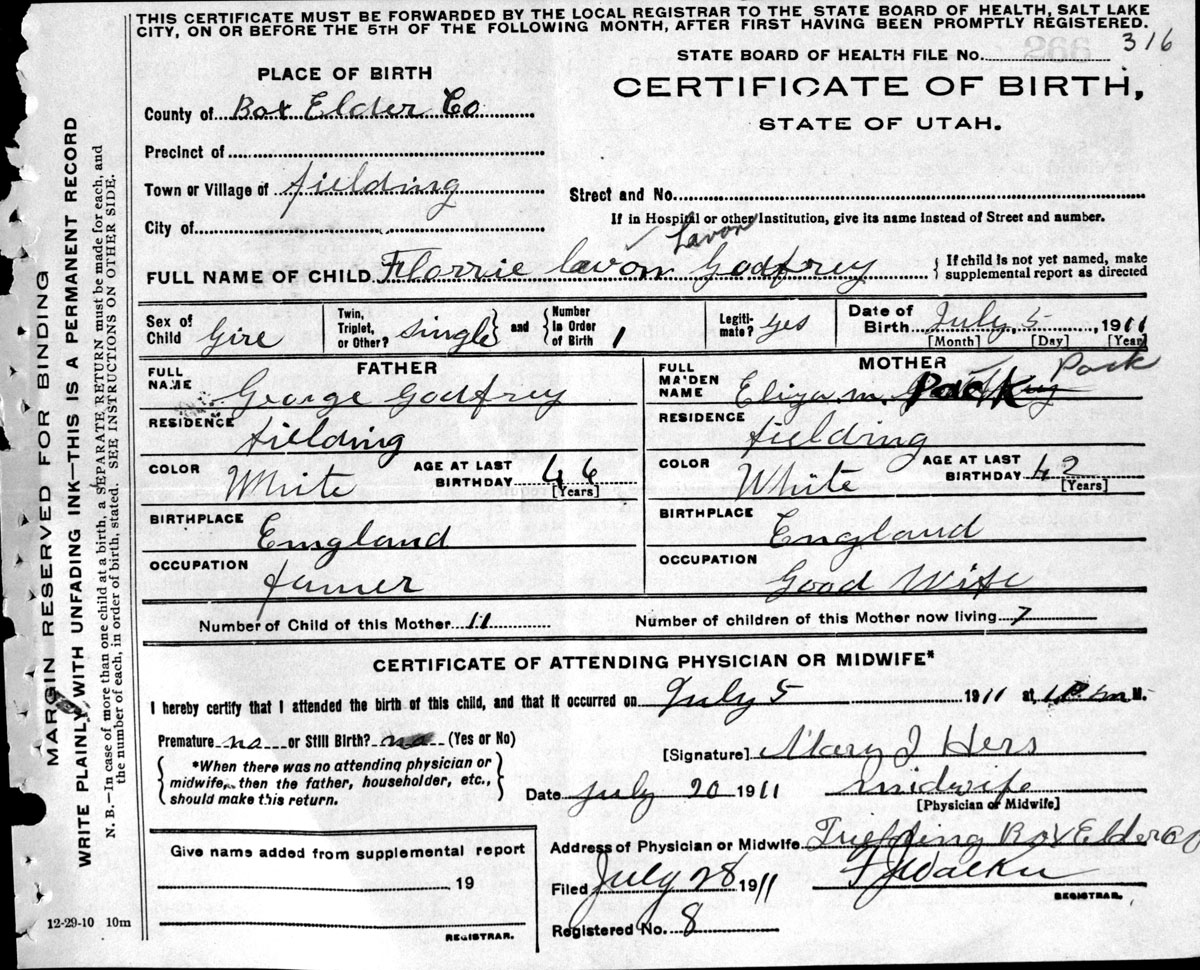 THIS CERTIFICATE MUST BE FORWARDED BY THE LOCAL REGISTRAR TO THE STATE BOARD OF HEALTH, SALT LAKE
CITY, ON OR BEFORE THE 5TH OF THE FOLLOWING MONTH, AFTER FIRST HAVING BEEN PROMPTLY REGISTERED.
316
STATE BOARD OF HEALTH FILE No.
CERTIFICATE OF BIRTH,
STATE OF UTAH.
PLACE OF BIRTH
County of Box Elder Co
Precinct of
Town or Village of fielding
Street and No.
If in Hospital or other Institution, give its name instead of Street and number.
City of
Lavon
FULL NAME OF CHILD Florrie lavon Godfrey { If child is not yet named, make
supplemental report as directed
Sex of Child Gire
Twin, Triplet, or Other? single } and { Number in Order of Birth 1
Legitimate? yes
Date of Birth July, 5, 1911
[Month] [Day] [Year]
FATHER
FULL NAME George Godfrey
RESIDENCE fielding
COLOR White
AGE AT LAST BIRTHDAY 46
[Years]
BIRTHPLACE England
OCCUPATION farmer
MOTHER
FULL MAIDEN NAME Eliza m. Pack Pack
RESIDENCE fielding
COLOR White
AGE AT LAST BIRTHDAY 42
[Years]
BIRTHPLACE England
OCCUPATION Good Wife
Number of Child of this Mother 11
Number of children of this Mother now living 7
CERTIFICATE OF ATTENDING PHYSICIAN OR MIDWIFE*
I hereby certify that I attended the birth of this child, and that it occurred on July 5 1911 at M.
Premature no or Still Birth? no (Yes or No)
{ *When there was no attending physician or
midwife, then the father, householder, etc.,
should make this return. }
[Signature] Mary J Hers
Date July 20 1911 midwife
[Physician or Midwife]
Address of Physician or Midwife Box Elder Co
Filed July 28 1911 F J Walker
REGISTRAR.
Registered No. 8
Give name added from supplemental report
, 19
REGISTRAR.
12-29-10 10m
MARGIN RESERVED FOR BINDING
WRITE PLAINLY WITH UNFADING INK—THIS IS A PERMANENT RECORD
N. B.—In case of more than one child at a birth, a SEPARATE RETURN must be made for each, and
the number of each, in order of birth, stated. SEE INSTRUCTIONS ON OTHER SIDE.